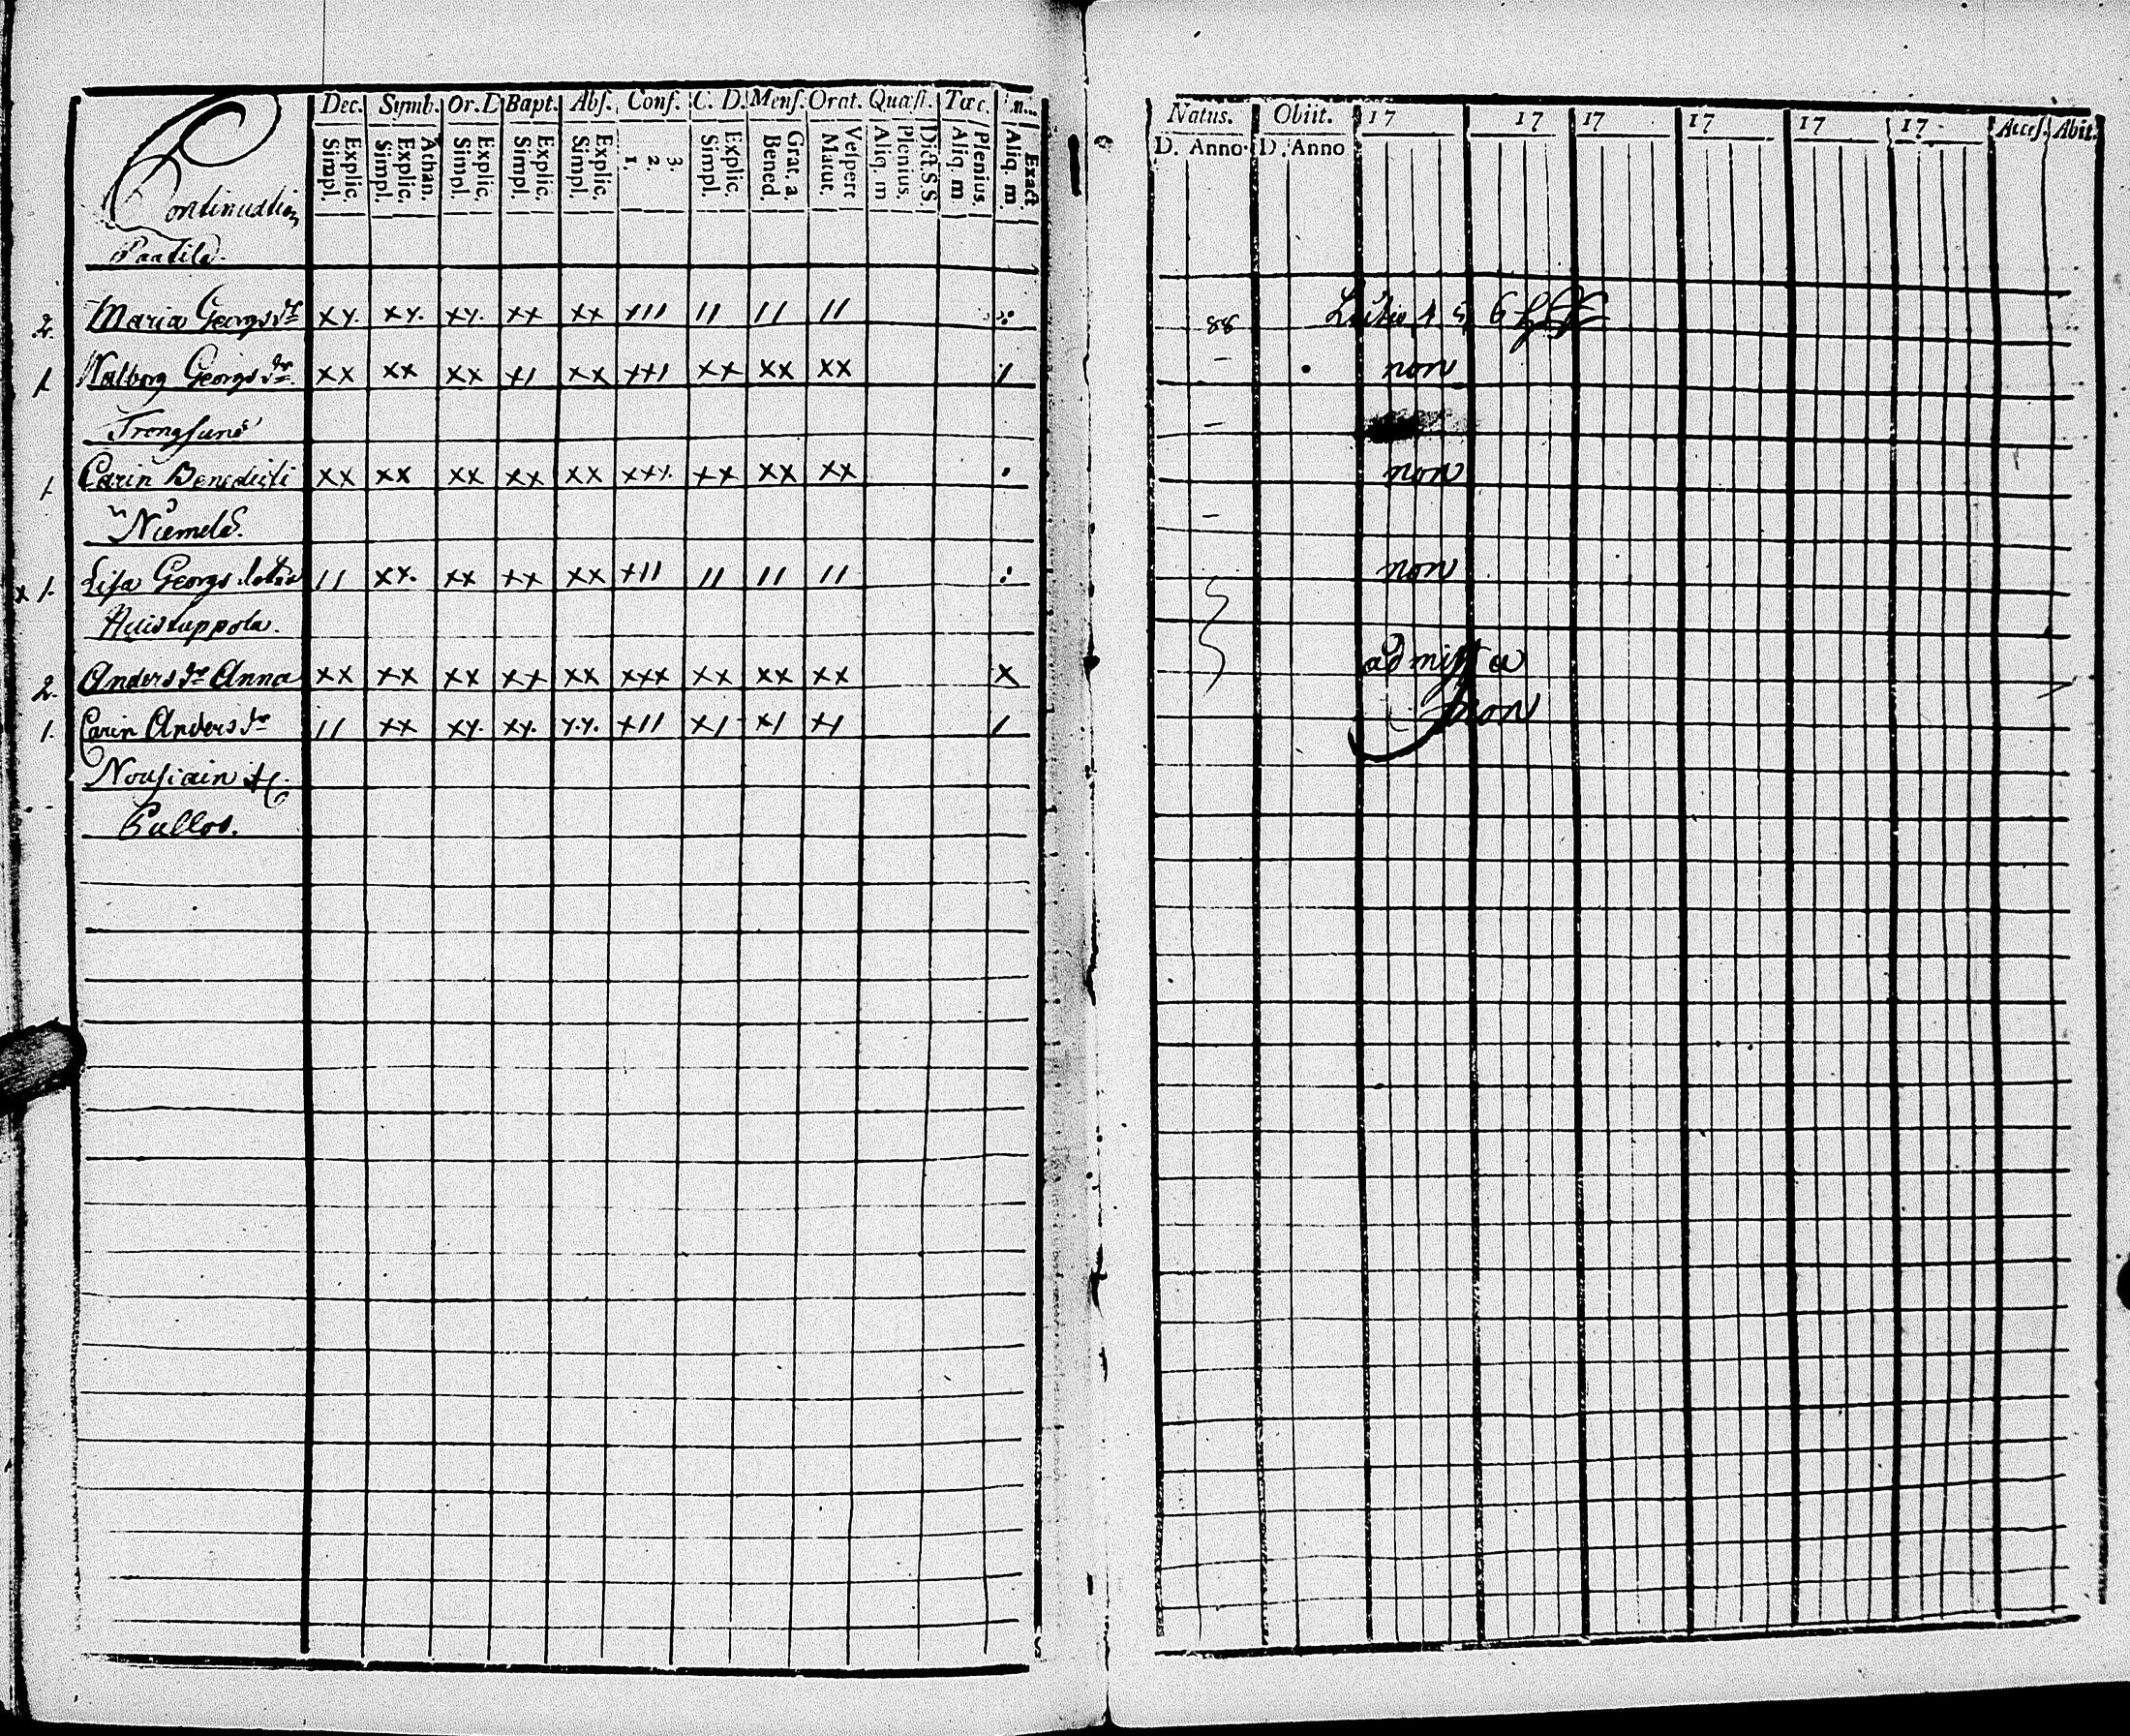 Dec. Symb. Or. D Bapt. Abſ. Conf. C. D. Menſ. Orat. Quæſt. Tæc.
Explic. Simpl. Athan. Explic. Simpl. Explic. Simpl. Explic. Simpl. Explic. Simpl. 3. 2. 1. Explic. Simpl. Grat. a. Bened. Veſpert. Matut. Dict. S. S Plenius. Aliq. m Plenius. Aliq. m Exact Aliq. m
Natus. Obiit. 17 17 17 17 17 17 Acceſ. Abit.
D. Anno D. Anno
Continuation
Paatila.
2. Maria Georgs dr xx. xx. xx. xx xx +11 11 11 11
88 4 5 6
1 Walborg Georgs dr xx xx xx x1 xx ++1 xx xx xx 1
– non
–
1 Carin Benedicti xx xx xx xx xx xxx. xx xx xx
non
Niemelä.
–
x 1. Liſa Georgs dotter 11 xx. xx xx xx +11 11 11 11
non
2. Anders dr Anna xx xx xx xx xx xxx xx xx xx x
admiſſa
1. Carin Anders dr 11 xx xx. xx. xx. +11 x1 x1 x1 1
non
Nouſiain
Pullos.